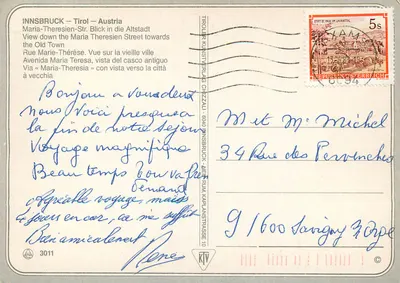 INNSBRUCK – Tirol – Austria
Maria-Theresien-Str. Blick in die Altstadt
View down the Maria Theresien Street towards
the Old Town
Rue Marie-Thérèse. Vue sur la vieille ville
Avenida Maria Teresa, vista del casco antiguo
Via « Maria-Theresia » con vista verso la città
à vecchia
Bonjour à vous deux
Nous voici presque à
la fin de notre séjour
Voyage magnifique
Beau temps Tout va bien
Fernand
Agréable voyage, mais
4 jours encore, ça me suffit
Bien amicalement
René
3011
TIROLER KUNSTVERLAG CHIZZALI
INNSBRUCK
KTV
5s
REPUBLIK ÖSTERREICH
94
M et Me Michel
34 Rue des Pervenches
91600 Savigny s/Orge
©